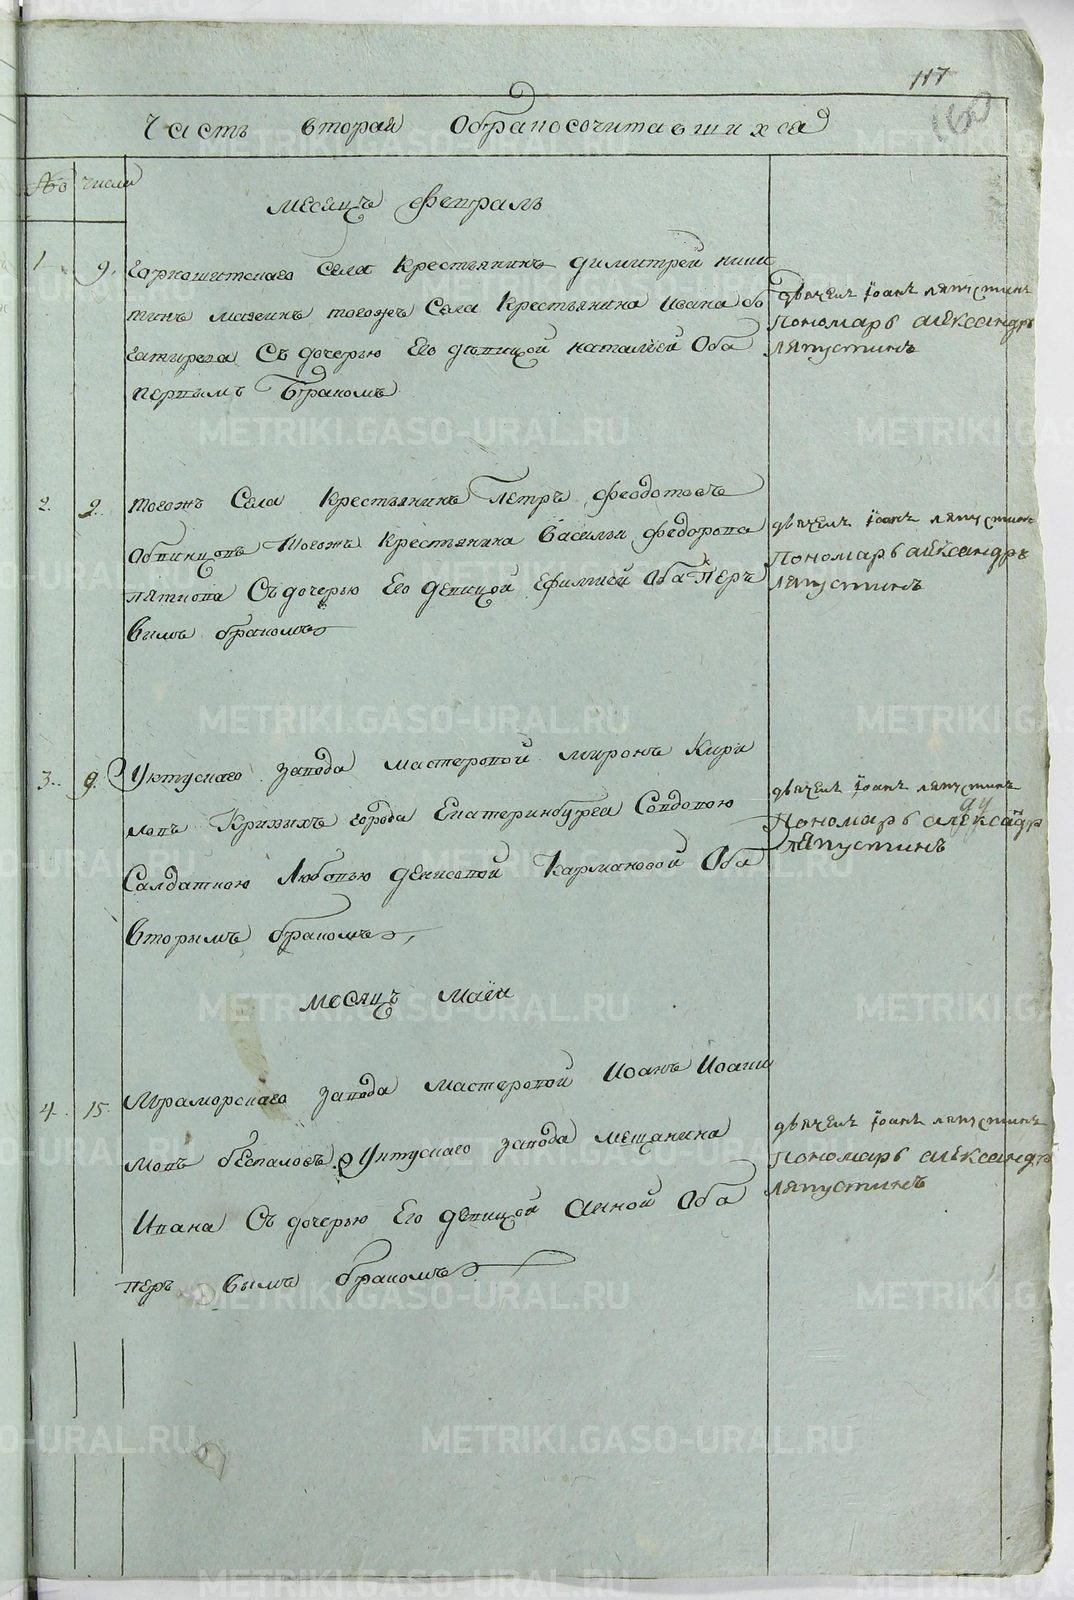 117
160
Часть вторая Обракосочитавшихся
№ число
месяцъ февраль
1. 9. Горношитскаго Села Крестьянинъ димитрей ники
тинъ мазеинъ тогожъ Села Крестьянина Ивана бо
гатырева Съ дочерью Его девицой наталией Оба
первымъ Бракомъ
дьячекъ Iоанъ ляпустинъ
Пономарь александръ
ляпустинъ
2. 9. тогожъ Села Крестьянинъ Петръ феодотовъ
Овчинцовъ тогожъ Крестьянина Василья федорова
пяткова Съ дочерью Его девицой Ефимией Оба Пер
вымъ бракомъ
дьячекъ Iоанъ ляпустинъ
Пономарь александръ
ляпустинъ
3. 9. Уктускаго завода мастеровой миронъ Кири
ловъ Кривыхъ города Екатеринбурга Совдовою
Салдаткою Любовью денисовой Кармановой Оба
Вторымъ бракомъ
дьячекъ Iоанъ ляпустинъ
Пономарь александр
ляпустинъ
месяцъ маїи
4. 15. Мраморскаго завода мастеровой Иоанъ Иоаки
мовъ беспаловъ Уктускаго завода мещанина
Ивана Съ дочерью Его девицой анной Оба
перъ вымъ бракомъ
дьячекъ Iоанъ ляпустинъ
Пономарь александръ
ляпустинъ
METRIKI.GASO-URAL.RU